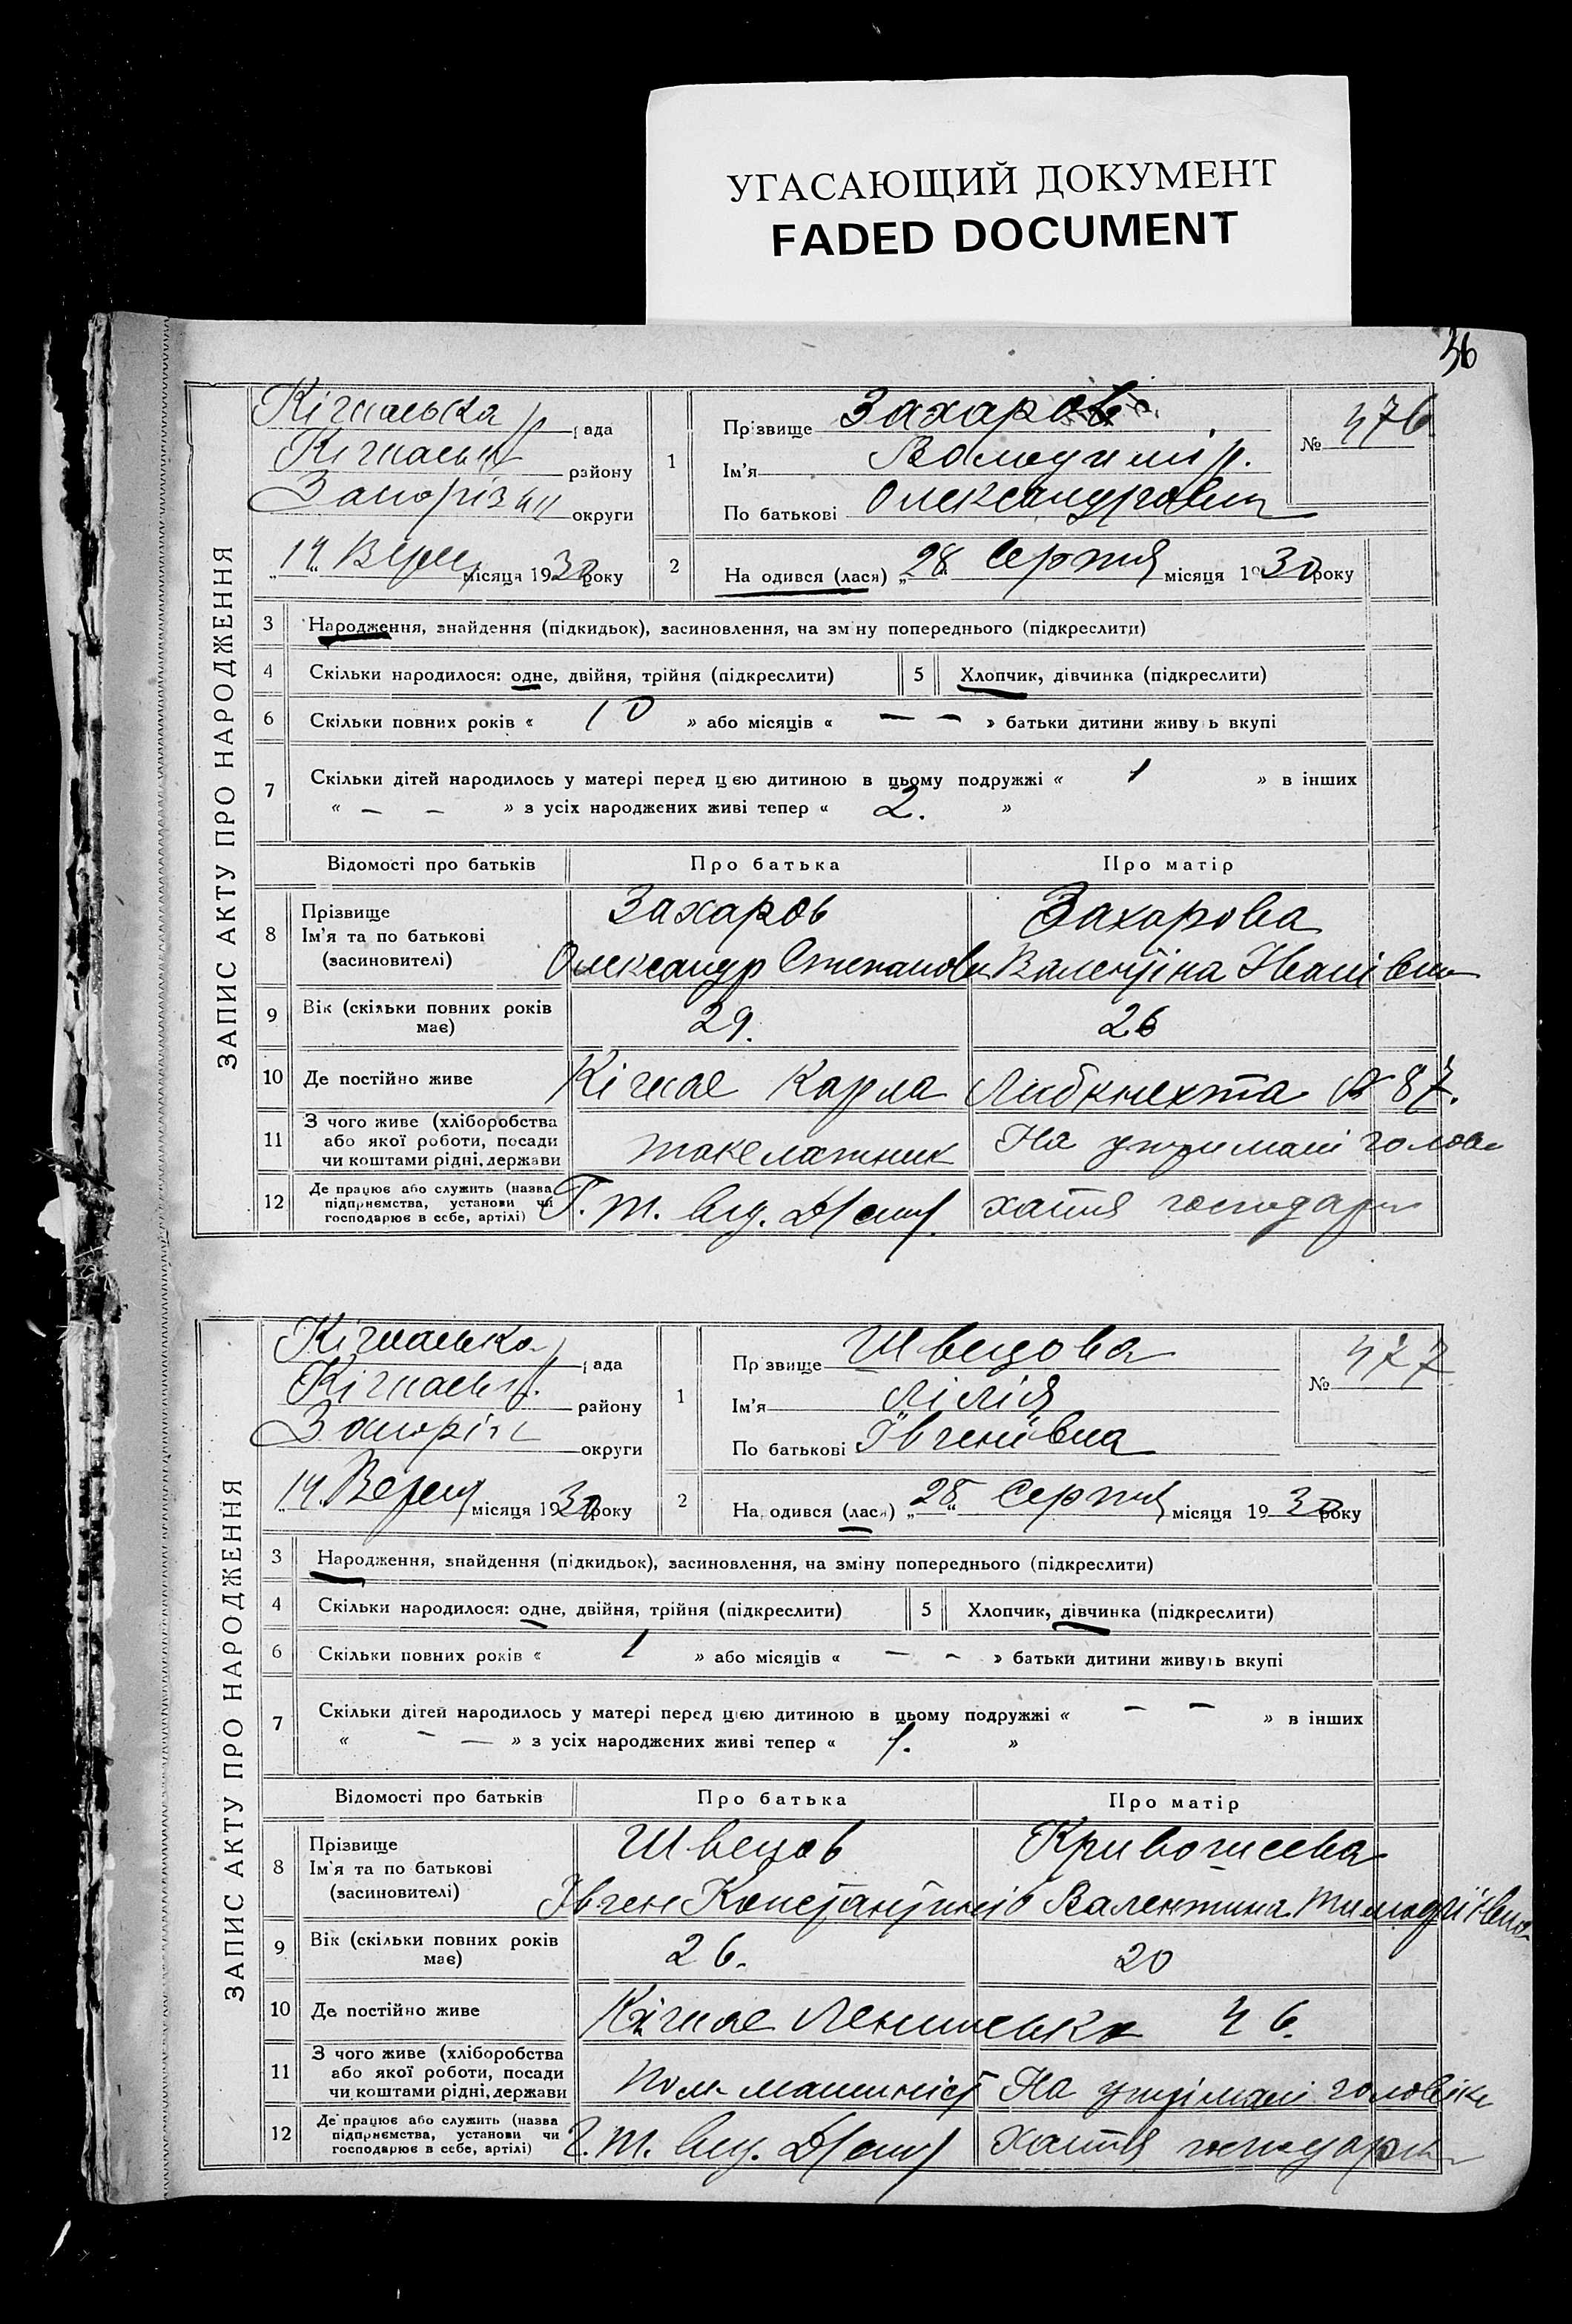 УГАСАЮЩИЙ ДОКУМЕНТ
FADED DOCUMENT
36
ЗАПИС АКТУ ПРО НАРОДЖЕННЯ
Кічкаська р рада
Кічкаськ району
Запоріз округи
„14“ Верес місяця 1930 року
1
Прізвище Захаров
Ім'я Володимір.
По батькові Олександрович
№ 476
2
На одився (лася) „28“ Серпня місяця 1930 року
3 Народження, знайдення (підкидьок), засиновлення, на зміну попереднього (підкреслити)
4 Скільки народилося: одне, двійня, трійня (підкреслити) 5 Хлопчик, дівчинка (підкреслити)
6 Скільки повних років « 10 » або місяців « — — » батьки дитини живуть вкупі
7 Скільки дітей народилось у матері перед цією дитиною в цьому подружжі « 1 » в інших
« — — » з усіх народжених живі тепер « 2. »
Відомості про батьків Про батька Про матір
8 Прізвище
Ім'я та по батькові
(засиновителі)
Захаров Захарова
Олександр Степанов Валентіна Іванівна
9 Вік (скільки повних років має) 29. 26
10 Де постійно живе Кічкас Карла Либкнехта № 87.
11 З чого живе (хліборобства
або якої роботи, посади
чи коштами рідні, держави
такелажник На утримані голови
12 Де працює або служить (назва
підприємства, установи чи
господарює в себе, артілі)
Г. т. хатня господар
ЗАПИС АКТУ ПРО НАРОДЖЕННЯ
Кічкаська рада
Кічкаськ району
Запоріз округи
„14“ Верес місяця 1930 року
1
Прізвище Швецова
Ім'я Лілія
По батькові Івгенівна
№ 477
2
На одився (лася) „28“ Серпня місяця 1930 року
3 Народження, знайдення (підкидьок), засиновлення, на зміну попереднього (підкреслити)
4 Скільки народилося: одне, двійня, трійня (підкреслити) 5 Хлопчик, дівчинка (підкреслити)
6 Скільки повних років « 1 » або місяців « — — » батьки дитини живуть вкупі
7 Скільки дітей народилось у матері перед цією дитиною в цьому подружжі « — — » в інших
« — — » з усіх народжених живі тепер « 1. »
Відомості про батьків Про батька Про матір
8 Прізвище
Ім'я та по батькові
(засиновителі)
Швецов
Івген Валентина
9 Вік (скільки повних років має) 26. 20
10 Де постійно живе Кічкас Ленинська 46.
11 З чого живе (хліборобства
або якої роботи, посади
чи коштами рідні, держави
пом машиніст На утрімані
12 Де працює або служить (назва
підприємства, установи чи
господарює в себе, артілі)
Г. т. Хатня господарк